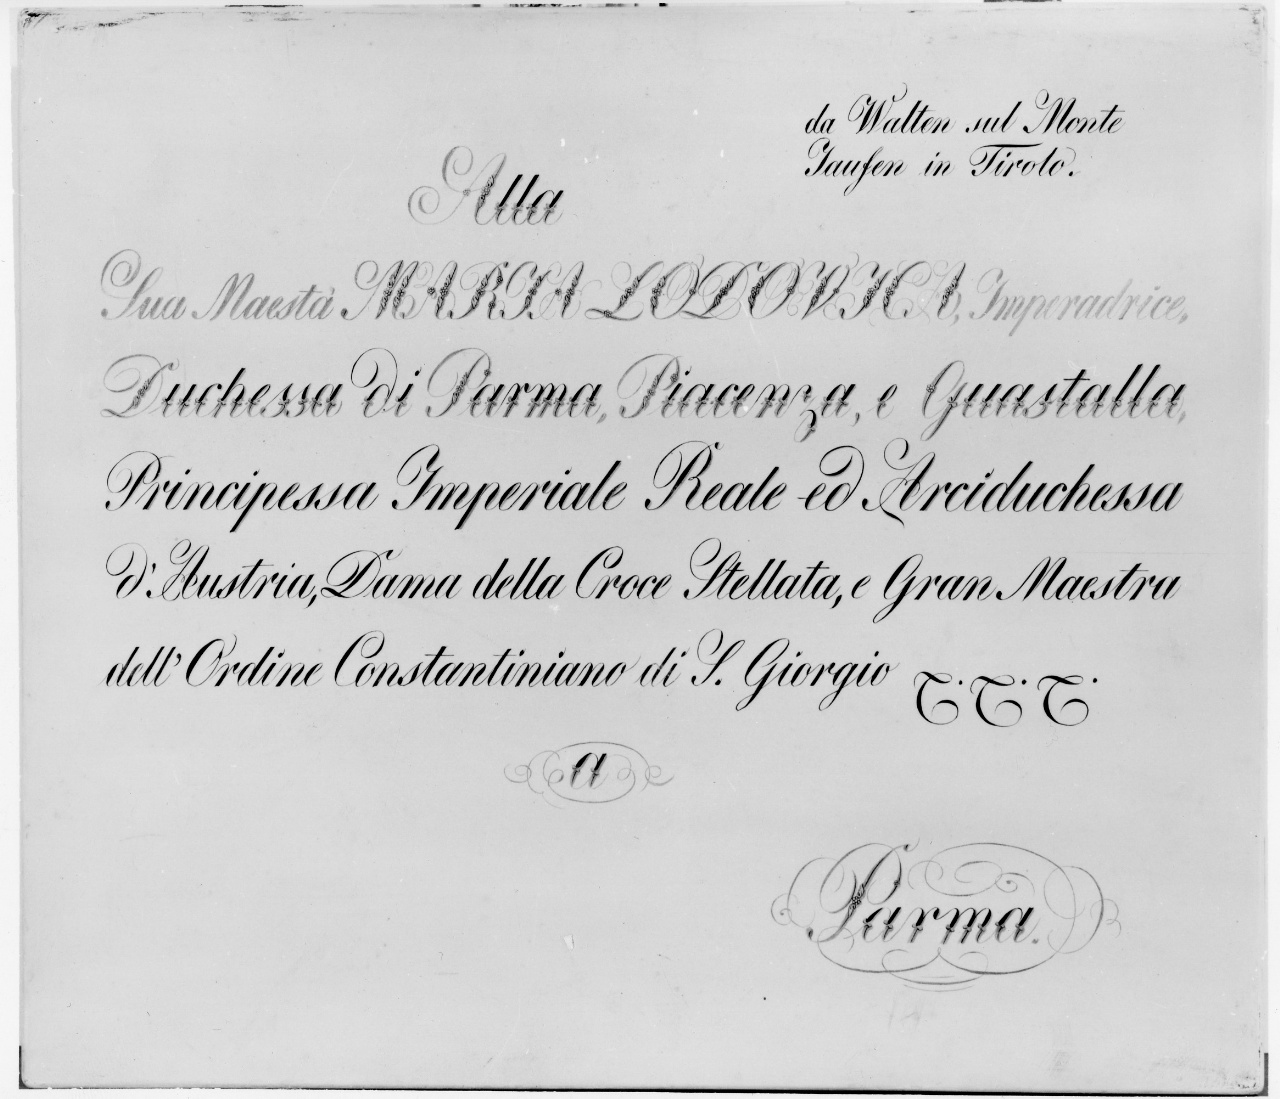 da Walten sul Monte
Jaufen in Tirolo.
Alla
Sua Maestà MARIA LODOVICA, Imperadrice,
Duchessa di Parma, Piacenza, e Guastalla,
Principessa Imperiale Reale ed Arciduchessa
d'Austria, Dama della Croce Stellata, e Gran Maestra
dell'Ordine Constantiniano di S. Giorgio &. &. &.
a
Parma.